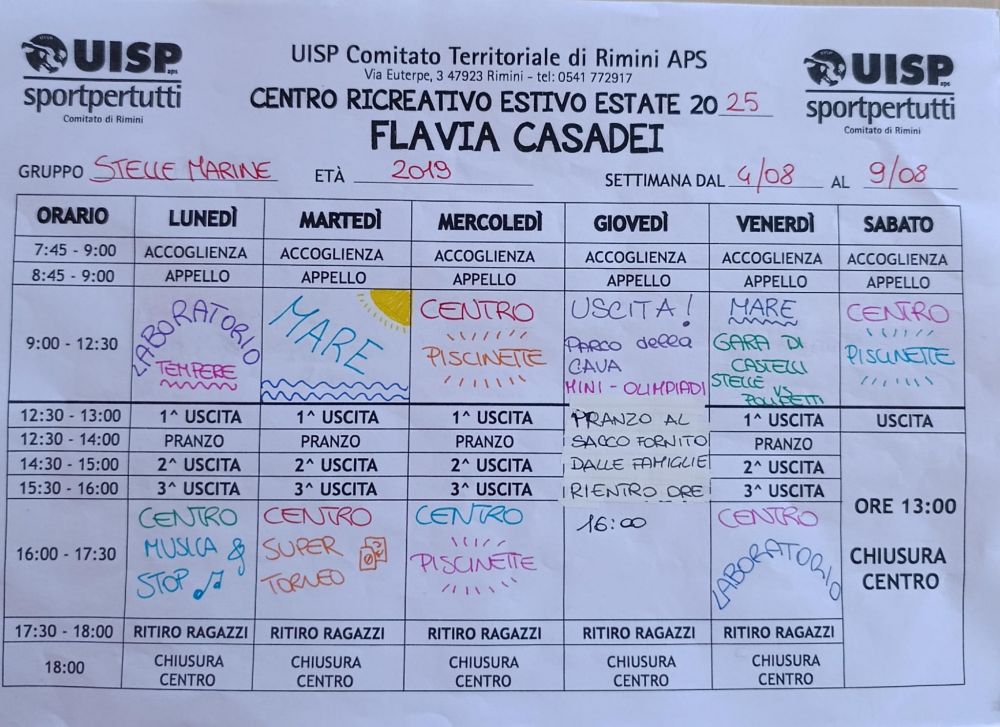 UISP aps
sportpertutti
Comitato di Rimini
UISP Comitato Territoriale di Rimini APS
Via Euterpe, 3 47923 Rimini - tel: 0541 772917
CENTRO RICREATIVO ESTIVO ESTATE 2025
FLAVIA CASADEI
UISP aps
sportpertutti
Comitato di Rimini
GRUPPO STELLE MARINE ETÀ 2019 SETTIMANA DAL 4/08 AL 9/08
ORARIO LUNEDÌ MARTEDÌ MERCOLEDÌ GIOVEDÌ VENERDÌ SABATO
7:45 - 9:00 ACCOGLIENZA ACCOGLIENZA ACCOGLIENZA ACCOGLIENZA ACCOGLIENZA ACCOGLIENZA
8:45 - 9:00 APPELLO APPELLO APPELLO APPELLO APPELLO APPELLO
9:00 - 12:30
LABORATORIO
TEMPERE
MARE
CENTRO
PISCINETTE
USCITA!
PARCO della
CAVA
MINI - OLIMPIADI
MARE
GARA DI
CASTELLI
STELLE VS
POLIPETTI
CENTRO
PISCINETTE
12:30 - 13:00 1^ USCITA 1^ USCITA 1^ USCITA PRANZO AL 1^ USCITA USCITA
12:30 - 14:00 PRANZO PRANZO PRANZO SACCO FORNITO PRANZO
14:30 - 15:00 2^ USCITA 2^ USCITA 2^ USCITA DALLE FAMIGLIE 2^ USCITA
15:30 - 16:00 3^ USCITA 3^ USCITA 3^ USCITA RIENTRO ORE 3^ USCITA
16:00 - 17:30
CENTRO
MUSICA &
STOP
CENTRO
SUPER
TORNEO
CENTRO
PISCINETTE
16:00
CENTRO
LABORATORIO
ORE 13:00
CHIUSURA
CENTRO
17:30 - 18:00 RITIRO RAGAZZI RITIRO RAGAZZI RITIRO RAGAZZI RITIRO RAGAZZI RITIRO RAGAZZI
18:00 CHIUSURA CENTRO CHIUSURA CENTRO CHIUSURA CENTRO CHIUSURA CENTRO CHIUSURA CENTRO